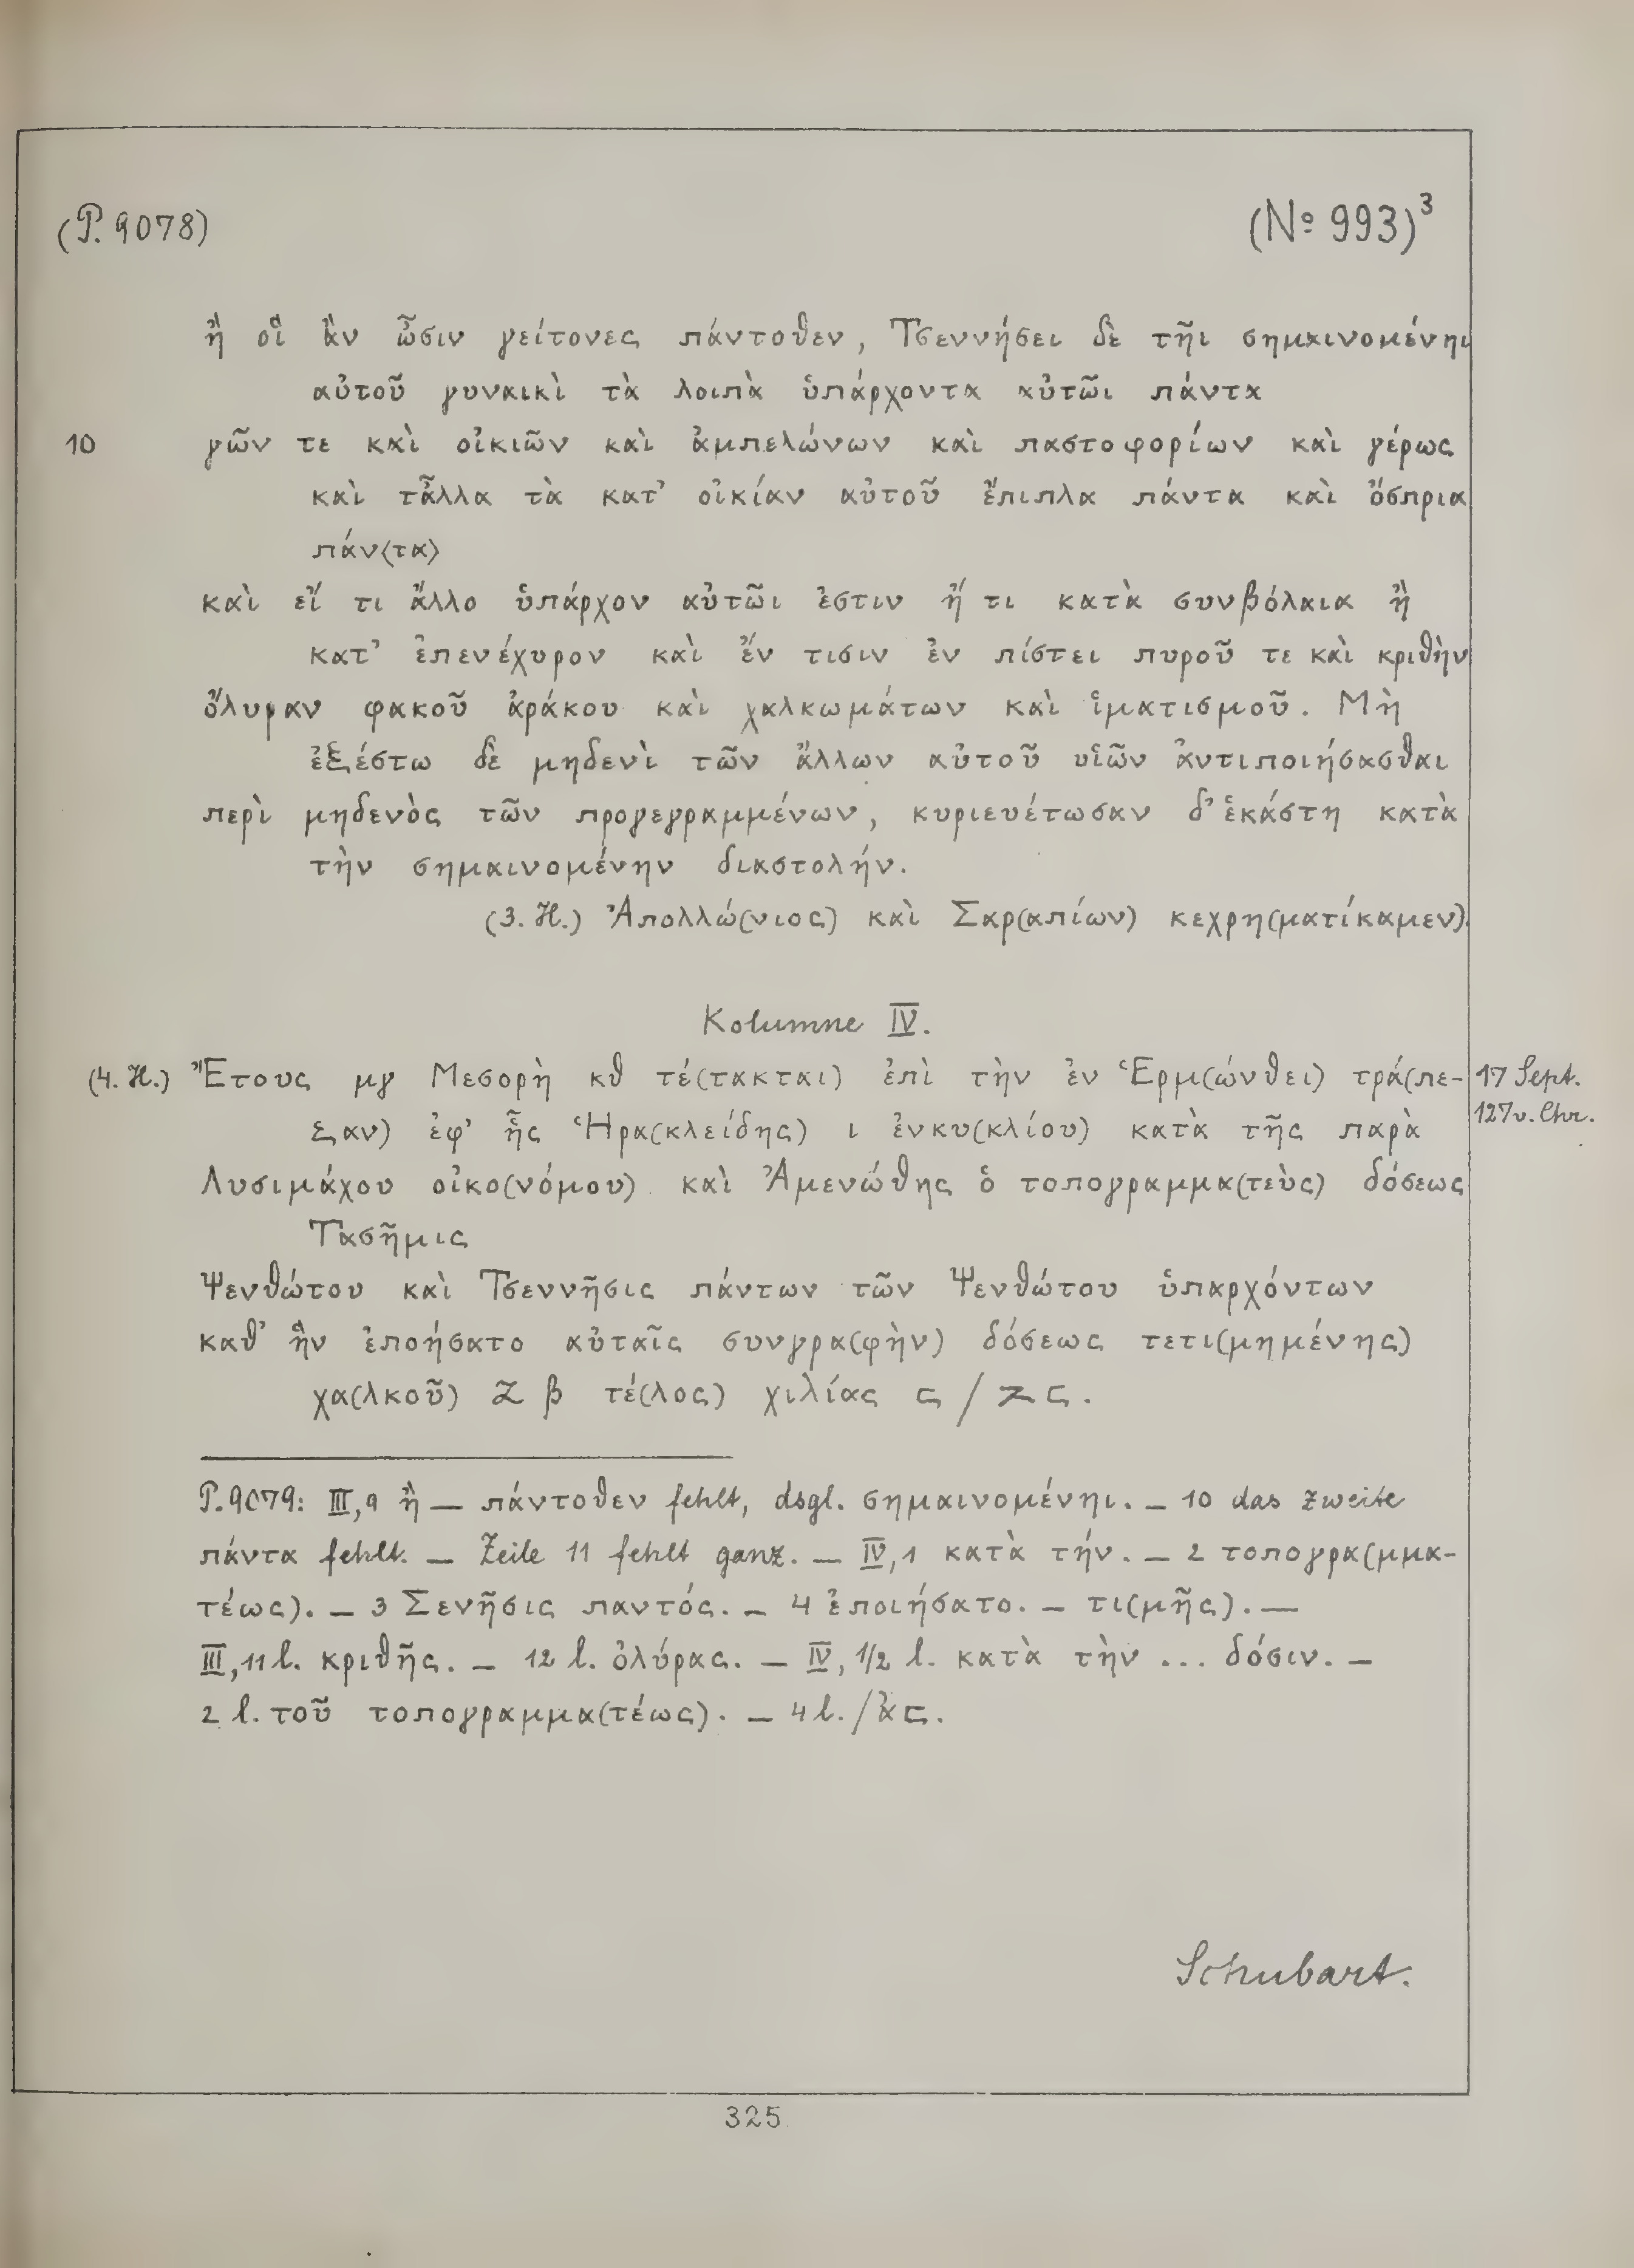 (P. 9078)
(No 993)³
ἢ οἳ ἂν ὦσιν γείτονες πάντοθεν, Τσεννήσει δὲ τῆι σημαινομένηι
αὐτοῦ γυναικὶ τὰ λοιπὰ ὑπάρχοντα αὐτῶι πάντα
10 γῶν τε καὶ οἰκιῶν καὶ ἀμπελώνων καὶ παστοφορίων καὶ γέρως
καὶ τἆλλα τὰ κατ’ οἰκίαν αὐτοῦ ἔπιπλα πάντα καὶ ὄσπρια
πάν⟨τα⟩
καὶ εἴ τι ἄλλο ὑπάρχον αὐτῶι ἐστιν ἤ τι κατὰ συνβόλαια ἢ
κατ’ ἐπενέχυρον καὶ ἔν τισιν ἐν πίστει πυροῦ τε καὶ κριθὴν
ὄλυραν φακοῦ ἀράκου καὶ χαλκωμάτων καὶ ἱματισμοῦ. Μὴ
ἐξέστω δὲ μηδενὶ τῶν ἄλλων αὐτοῦ υἱῶν ἀντιποιήσασθαι
περὶ μηδενὸς τῶν προγεγραμμένων, κυριευέτωσαν δ’ ἑκάστη κατὰ
τὴν σημαινομένην διαστολήν.
(3. H.) Ἀπολλώ(νιος) καὶ Σαρ(απίων) κεχρη(ματίκαμεν).
Kolumne IV.
(4. H.) Ἔτους μγ Μεσορὴ κθ τέ(τακται) ἐπὶ τὴν ἐν Ἑρμ(ώνθει) τρά(πε- 17 Sept.
ζαν) ἐφ’ ἧς Ἡρα(κλείδης) ι ἐνκυ(κλίου) κατὰ τῆς παρὰ 127 v. Chr.
Λυσιμάχου οἰκο(νόμου) καὶ Ἀμενώθης ὁ τοπογραμμα(τεὺς) δόσεως
Τασῆμις
Ψενθώτου καὶ Τσεννῆσις πάντων τῶν Ψενθώτου ὑπαρχόντων
καθ’ ἣν ἐποήσατο αὐταῖς συνγρα(φὴν) δόσεως τετι(μημένης)
χα(λκοῦ) β τέ(λος) χιλίας
P. 9079: III, 9 ἢ — πάντοθεν fehlt, dsgl. σημαινομένηι. — 10 das zweite
πάντα fehlt. — Zeile 11 fehlt ganz. — IV, 1 κατὰ τήν. — 2 τοπογρα(μμα-
τέως). — 3 Σενῆσις παντός. — 4 ἐποιήσατο. — τι(μῆς). —
III, 11 l. κριθῆς. — 12 l. ὀλύρας. — IV, 1/2 l. κατὰ τὴν ... δόσιν. —
2 l. τοῦ τοπογραμμα(τέως). — 4 l.
Schubart.
325